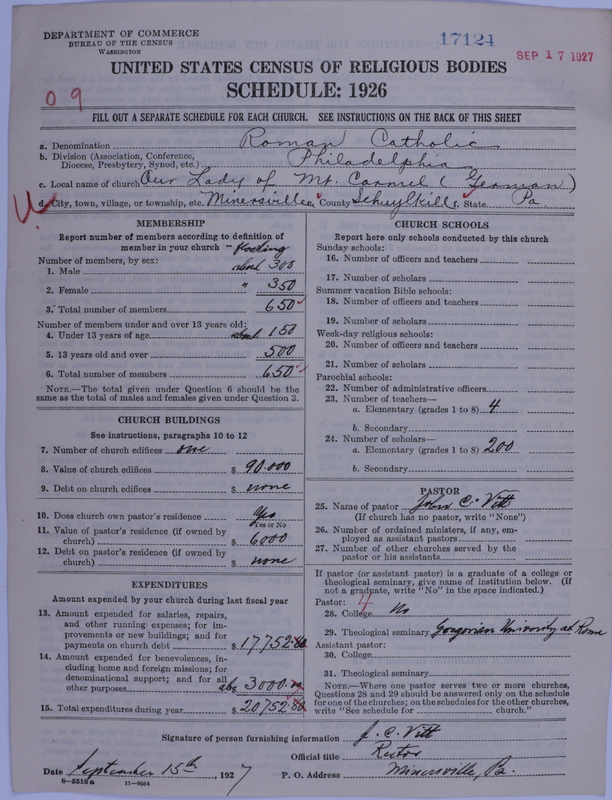 DEPARTMENT OF COMMERCE
BUREAU OF THE CENSUS
WASHINGTON
17124
SEP 17 1927
UNITED STATES CENSUS OF RELIGIOUS BODIES
SCHEDULE: 1926
09
FILL OUT A SEPARATE SCHEDULE FOR EACH CHURCH. SEE INSTRUCTIONS ON THE BACK OF THIS SHEET
a. Denomination Roman Catholic
b. Division (Association, Conference, Diocese, Presbytery, Synod, etc.) Philadelphia
c. Local name of church Our Lady of Mt. Carmel (German)
d. City, town, village, or township, etc. Minersville e. County Schuylkill f. State Pa
MEMBERSHIP
Report number of members according to definition of
member in your church
Number of members, by sex:
1. Male about 300
2. Female " 350
3. Total number of members 650
Number of members under and over 13 years old:
4. Under 13 years of age about 150
5. 13 years old and over 500
6. Total number of members 650
NOTE.—The total given under Question 6 should be
same as the total of males and females given under Question 3.
CHURCH BUILDINGS
See instructions, paragraphs 10 to 12
7. Number of church edifices one
8. Value of church edifices $ 90.000
9. Debt on church edifices $ none
10. Does church own pastor's residence Yes
Yes or No
11. Value of pastor's residence (if owned by
church) $ 6000
12. Debt on pastor's residence (if owned by
church) $ none
EXPENDITURES
Amount expended by your church during last fiscal year
13. Amount expended for salaries, repairs,
and other running expenses; for im-
provements or new buildings; and for
payments on church debt $ 17752.80
14. Amount expended for benevolences, in-
cluding home and foreign missions; for
denominational support; and for all
other purposes abt $ 3000.00
15. Total expenditures during year $ 20752.80
CHURCH SCHOOLS
Report here only schools conducted by this church
Sunday schools:
16. Number of officers and teachers
17. Number of scholars
Summer vacation Bible schools:
18. Number of officers and teachers
19. Number of scholars
Week-day religious schools:
20. Number of officers and teachers
21. Number of scholars
Parochial schools:
22. Number of administrative officers
23. Number of teachers—
a. Elementary (grades 1 to 8) 4
b. Secondary
24. Number of scholars—
a. Elementary (grades 1 to 8) 200
b. Secondary
PASTOR
25. Name of pastor John C. Vitt
(If church has no pastor, write "None")
26. Number of ordained ministers, if any, em-
ployed as assistant pastors
27. Number of other churches served by the
pastor or his assistants
If pastor (or assistant pastor) is a graduate of a college or
theological seminary, give name of institution below. (If
not a graduate, write "No" in the space indicated.)
Pastor: 4
28. College No
29. Theological seminary Gregorian University at Rome
Assistant pastor:
30. College
31. Theological seminary
NOTE.—Where one pastor serves two or more churches,
Questions 28 and 29 should be answered only on the schedule
for one of the churches; on the schedules for the other churches,
write "See schedule for church."
Signature of person furnishing information J. C. Vitt
Official title Rector
Date September 15th, 1927 P. O. Address Minersville, Pa.
8-5518a 11-9664